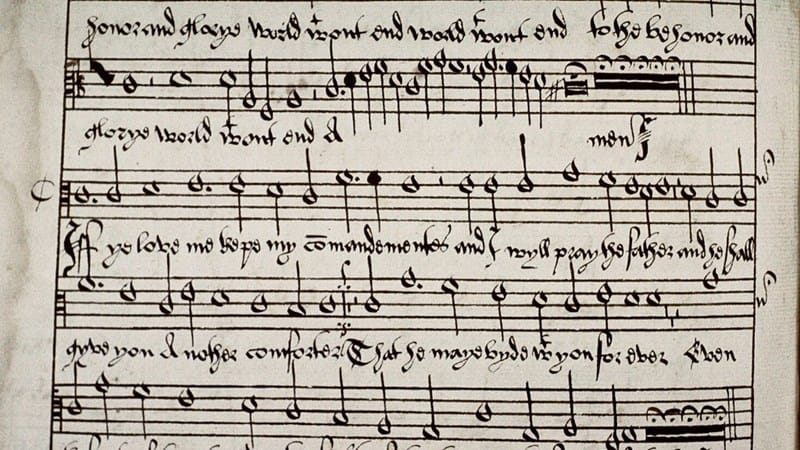 honor and glorye world wt out end world wt out end to the be honor and
glorye world wt out end A men
If ye love me kepe my cōmandementes and I wyll pray the father and he shall
gyve you A nother comforter That he maye byde wt you for ever Even